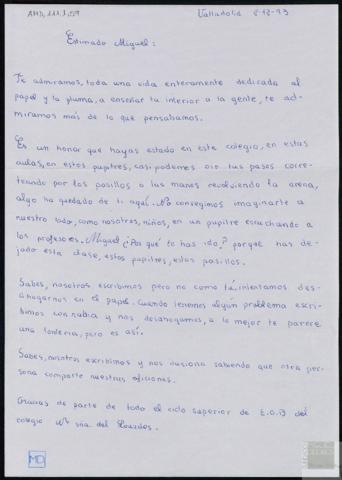 AMD, 111,3,229
Valladolid 8-12-93
Estimado Miguel:
Te admiramos, toda una vida enteramente dedicada al
papel y la pluma, a enseñar tu interior a la gente, te ad-
miramos más de lo que pensábamos.
Es un honor que hayas estado en este colegio, en estas
aulas, en estos pupitres, casi podemos oir tus pasos corre-
teando por los pasillos o tus manos revolviendo la arena,
algo ha quedado de ti aquí. No conseguimos imaginarte a
nuestro lado, como nosotros, niños, en un pupitre escuchando a
los profesores. Miguel ¿Por qué te has ido? porqué has de-
jado esta clase, estos pupitres, estos pasillos.
Sabes, nosotros escribimos pero no como tú, intentamos des-
ahogarnos en el papel. Cuando tenemos algún problema escri-
bimos con rabia y nos desahogamos, a lo mejor te parece
una tontería, pero es así.
Sabes, nosotros escribimos y nos ilusiona sabiendo que otra per-
sona comparte nuestras aficiones.
Gracias de parte de todo el ciclo superior de E.G.B del
colegio Nª sña. del Lourdes.
MD